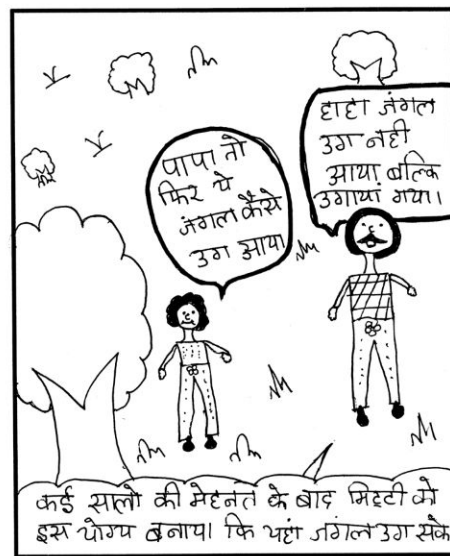 पापा तो
फिर ये
जंगल कैसे
उग आया
हाहा जंगल
उग नही
आया बल्कि
उगायां गया।
कई सालो की मेहनत के बाद मिट्टी को
इस योग्य बनाया कि यहां जंगल उग सके